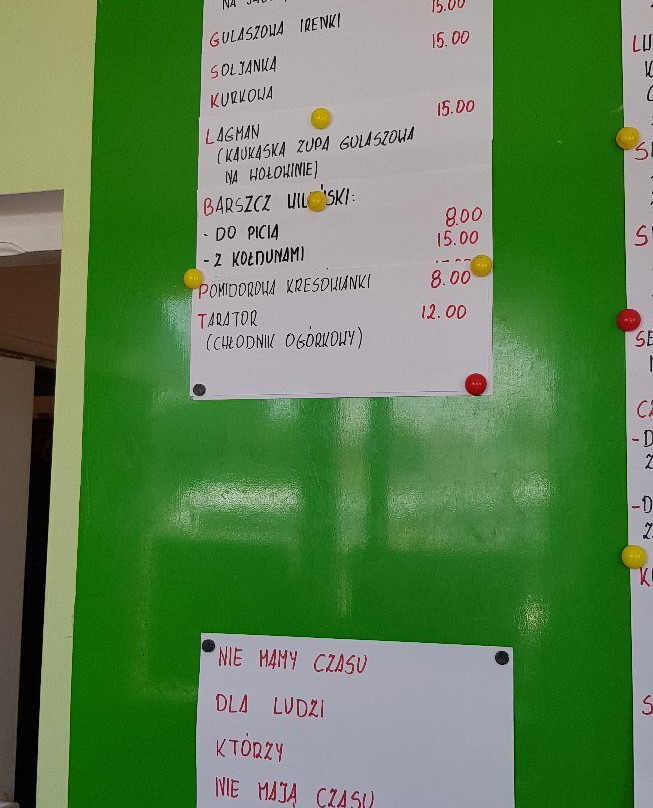 15.00
GULASZOWA IRENKI 15.00
SOLJANKA
KURKOWA 15.00
LAGMAN
(KAUKASKA ZUPA GULASZOWA
NA WOŁOWINIE)
BARSZCZ
- DO PICIA 8.00
- Z KOŁDUNAMI 15.00
POMIDOROWA KRESOWIANKI 8.00
TARATOR 12.00
(CHŁODNIK OGÓRKOWY)
NIE MAMY CZASU
DLA LUDZI
KTÓRZY
NIE MAJĄ CZASU